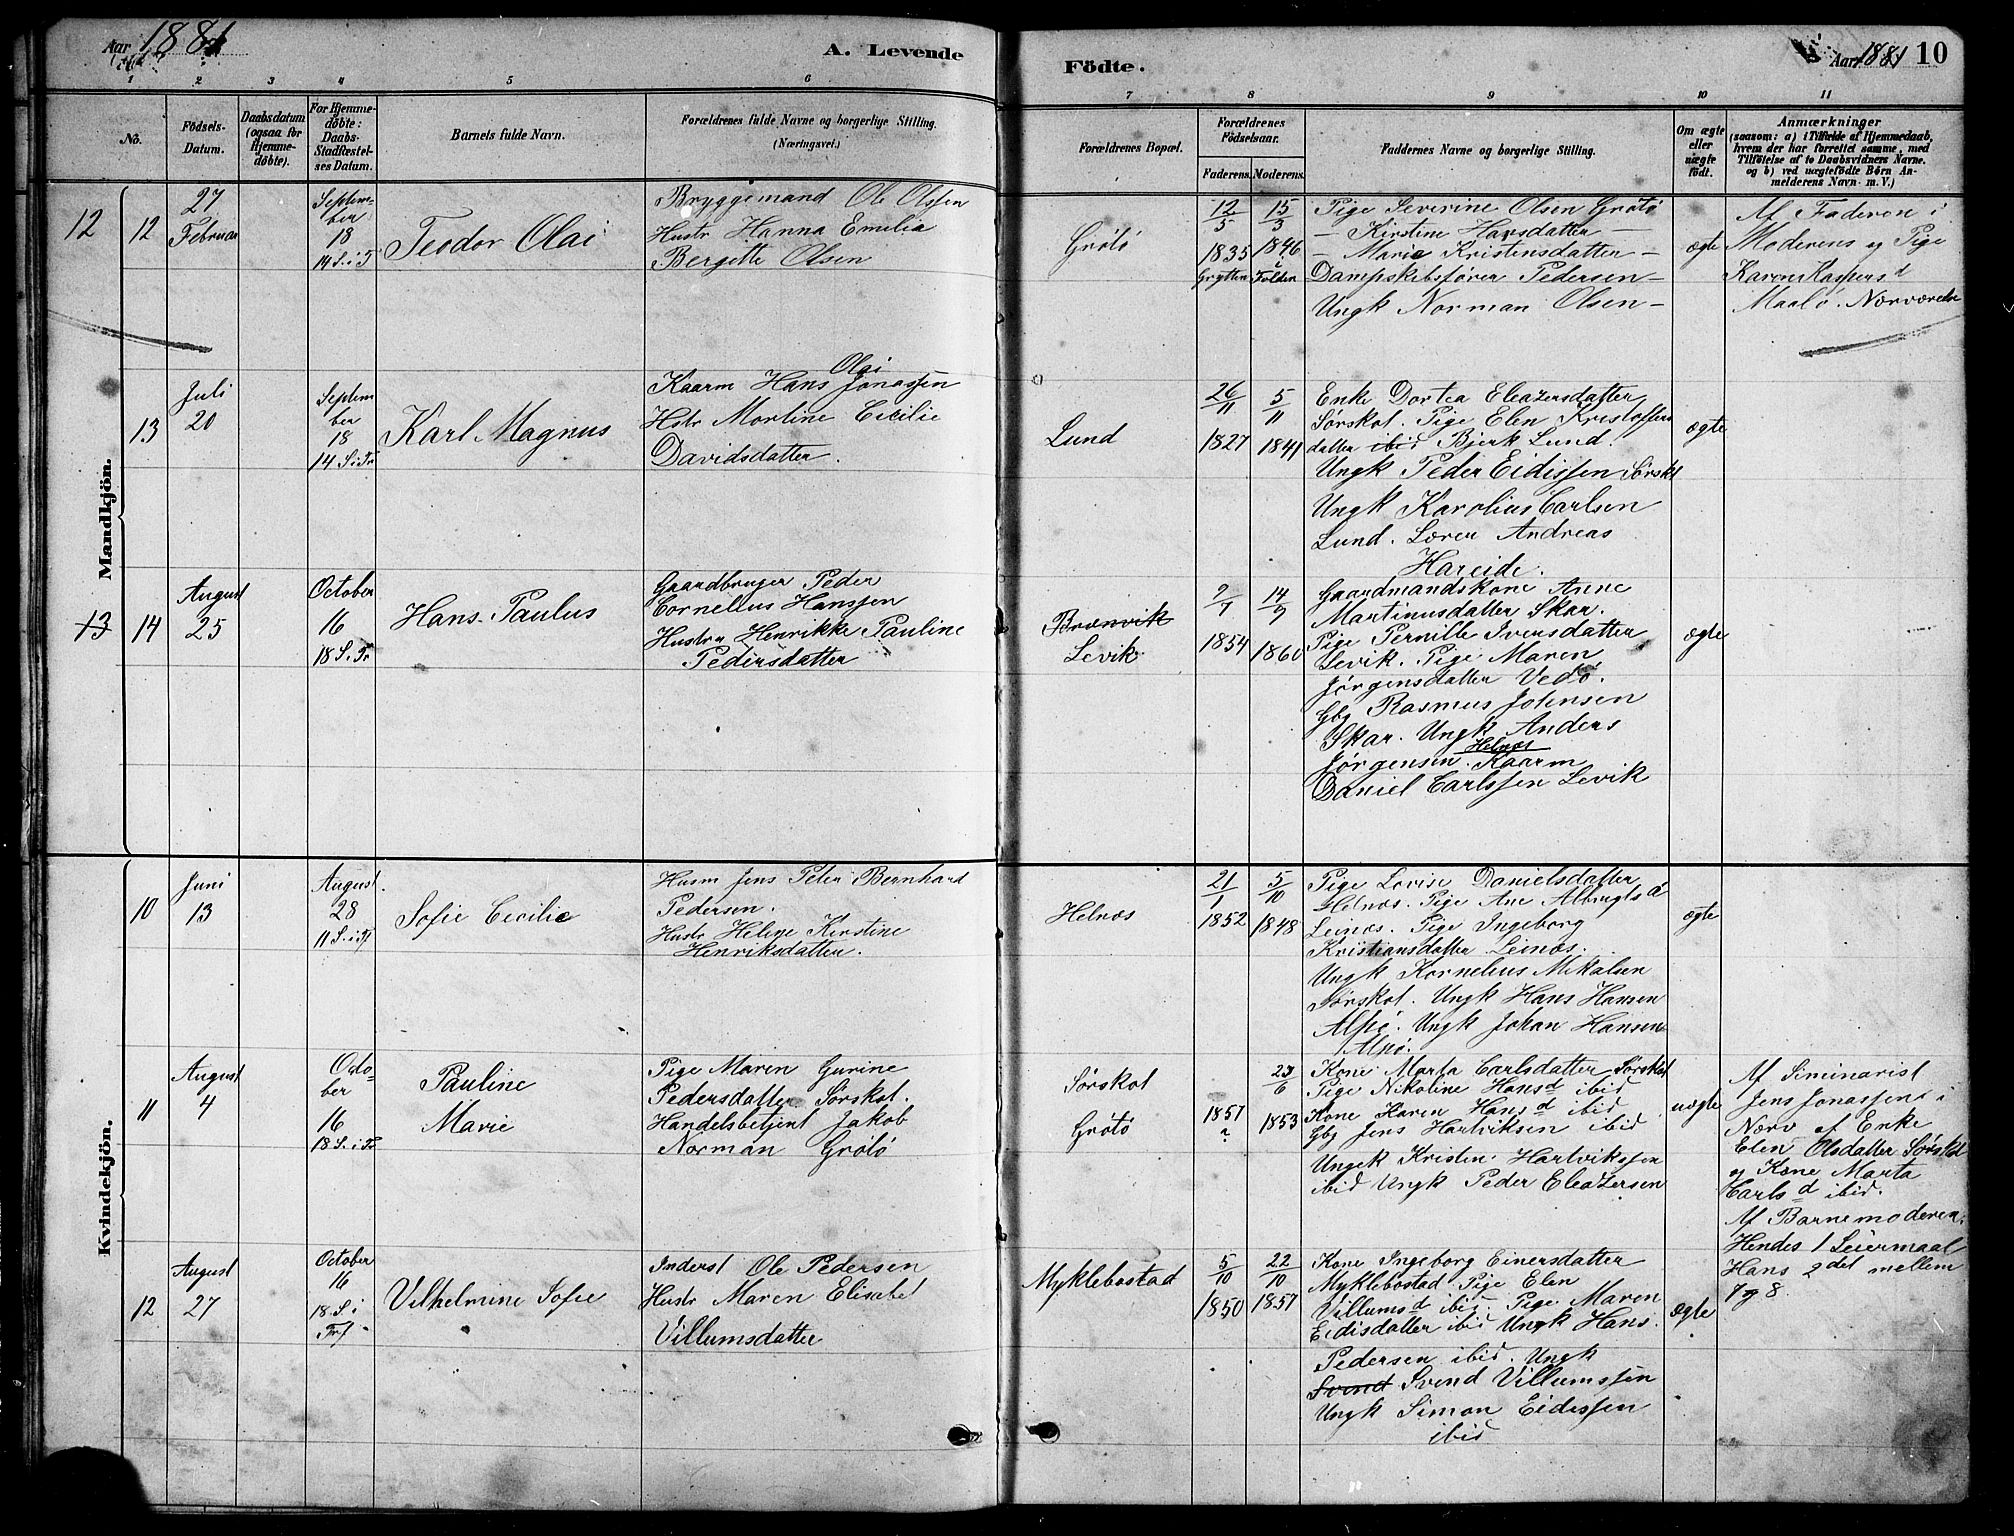 Aar 1881
A. Levende
Födte.
Aar 1881
10
1
2
3
4
5
6
7
8
9
10
11
No.
Födsels-
Datum.
Daabsdatum
(ogsaa for
Hjemme-
döbte).
For Hjemme-
döbte:
Daabs-
Stadfæstel-
ses Datum.
Barnets fulde Navn.
Forældrenes fulde Navne og borgerlige Stilling.
(Næringsvei.)
Forældrenes Bopæl.
Forældrenes
Födselsaar.
Faderens.
Moderens.
Faddernes Navne og borgerlige Stilling.
Om ægte
eller
uægte
født.
Anmærkninger
(saasom: a) i Tilfælde af Hjemmedaab,
hvem der har forrettet samme, med
Tilföielse af to Daabsvidners Navne.
og b) ved uægtefödte Börn An-
melderens Navn m. V.)
Mandkjön.
12
12
27
Februar
Septem-
ber
18
14 S. i T
Teodor Olai
Bryggemand Ole Olssen
Hustr Hanna Emelia
Bergitte Olsen
Grötö
12/5
1835
Grytten
15/3
1846
i
Folden
Pige Severine Olsen Grötö
— Kirstine Hansdatter —
— Marie Kristensdatter —
Dampskibsförer Pedersen —
Ungk Norman Olsen —
ægte
Af Faderen i
Moderens og Pige
Karen Kaspersd
Maalö. Nærværelse
13
Juli
20
Septem
ber
18
14 S. i Tr
Karl Magnus
Olai
Kaarm Hans Jonassen
Hstr Martine Cecilie
Davidsdatter.
Lund
26/11
1827
5/11
1841
Enke Dortea Eleazersdatter
Sørskot. Pige Elen Kristoffers
datter ibid Bjerk Lund.
Ungk Peder Eidissen Sørskt
Ungk Karolius Carlsen
Lund. Lærer Andreas
Hareide.
ægte
13
14
August
25
October
16
18 S. Tr
Hans Paulus
Gaardbruger Peder
Cornelius Hanssen
Hustru Henrikke Pauline
Pedersdatter
Brænvik
Levik
9/7
1854
14/9
1860
Gaardmandskone Anne
Martinusdatter Skar.
Pige Pernille Iversdatter
Levik. Pige Maren
Jørgensdatter Vedö.
Gbg Rasmus Johnsen
Skar. Ungk Anders
Helnæs
Jørgensen. Kaarm
Daniel Carlssen Levik
ægte
Kvindekjön.
10
Juni
13
August.
28
11 S. i Tf
Sofie Cecilie
Husm Jens Peter Bernhard
Pedersen.
Hustr Heline Kirstine
Henriksdatter.
Helnæs
21/1
1852
5/10
1848
Pige Lovise Danielsdatter
Helnæs. Pige Ane Albrigtsd
Leinæs. Pige Ingeborg
Kristiansdatter Leinæs.
Ungk Kornelius Mikalsen
Sørskot. Ungk Hans Hansen
Alpö. Ungk Johan Hansen
Alpö.
ægte
11
August
4
Octo-
ber
16
18 S. i Tr
Pauline
Marie
Pige Maren Gurine
Pedersdatter Sørskot.
Handelsbetjent Jakob
Norman Grötö
Sørskot
Grötö
1857
?
23/6
1853
Kone Marta Carlsdatter Sørskot
Pige Nikoline Hansd ibid
Kone Karen Hansd ibid
Gbg Jens Hartviksen ibid
Ungk Kristen Hartvikssen
ibid Ungk Peder Eleazersen
uægte
Af Siminarist
Jens Jonassen i
Nærv af Enke
Elen Olsdatter Sørskot
og Kone Marta
Karlsd ibid.
Af Barnemoderen.
Hendes 1 Leiermaal
Hans 2det mellem
7 og 8.
12
August
27
October
16
18 S. i
Trf.
Vilhelmine Sofie
Inderst Ole Pedersen
Hustr Maren Elisabet
Villumsdatter
Myklebostad
5/10
1850
22/10
1857
Kone Ingeborg Einersdatter
Myklebostad Pige Elen
Villumsd ibid. Pige Maren
Eidisdatter ibid Ungk Hans
Pedersen ibid. Ungk
Svend Svend Villumssen
Ungk Simon Eidissen
ibid
ægte